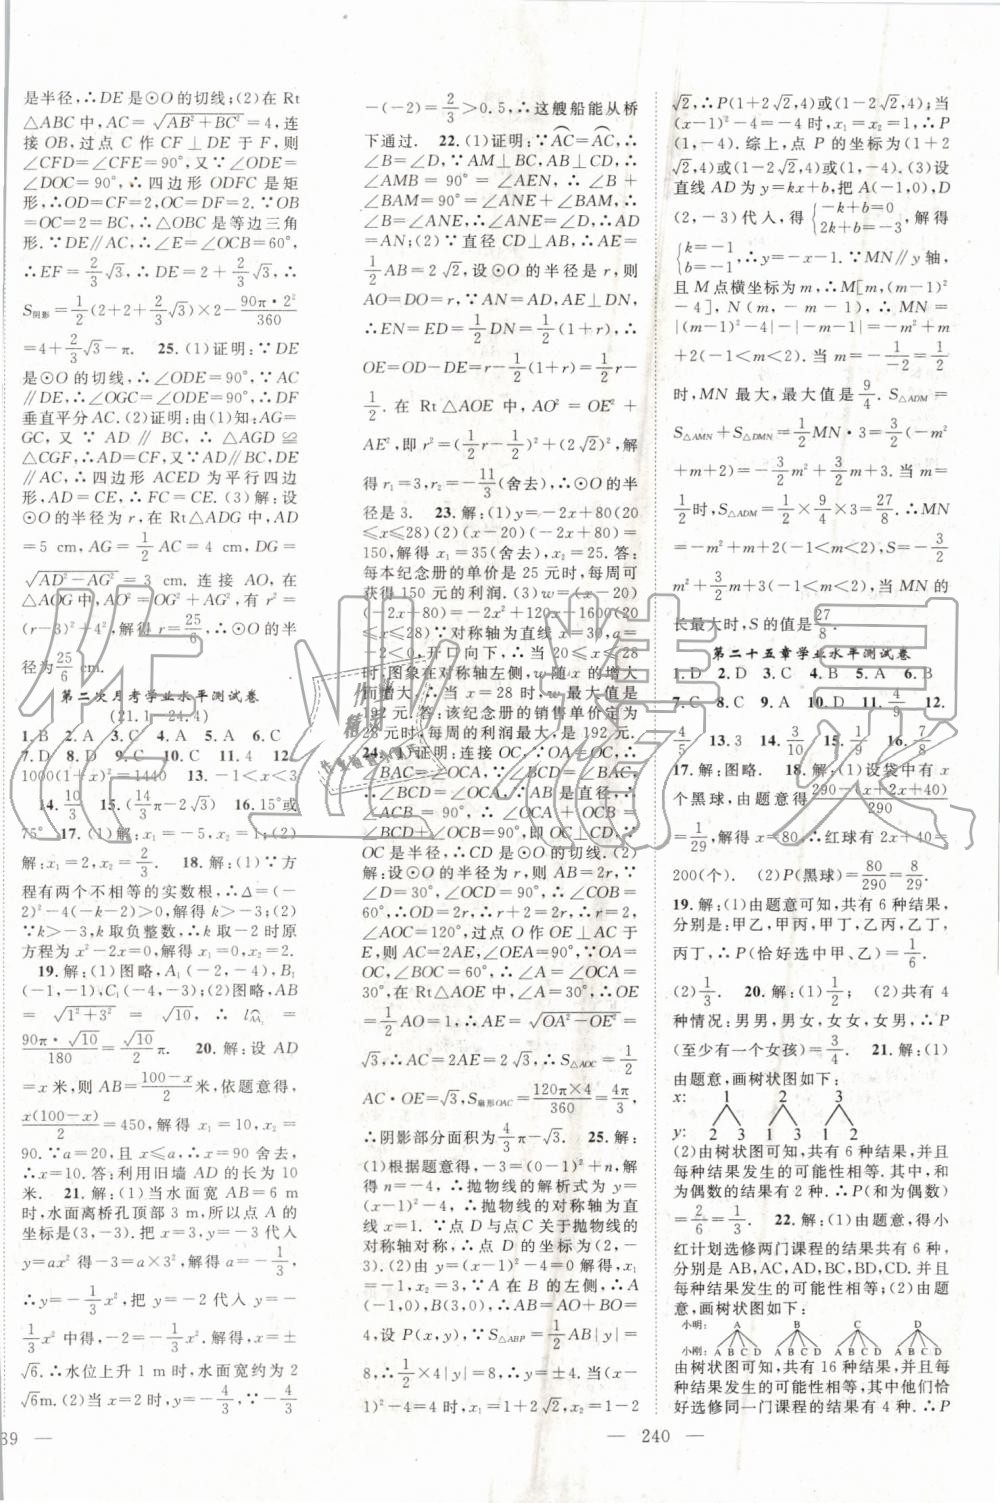 是半径,∴DE是⊙O的切线;(2)在Rt
△ABC中,AC=√(AB²+BC²)=4,连
接OB,过点C作CF⊥DE于F,则
∠CFD=∠CFE=90°,又∵∠ODE=
∠DOC=90°,∴四边形ODFC是矩
形,∴OD=CF=2,OC=DF=2.∵OB
=OC=2=BC,∴△OBC是等边三角
形.∵DE∥AC,∴∠E=∠OCB=60°,
∴EF=2/3√3,∴DE=2+2/3√3,∴
S阴影=1/2(2+2+2/3√3)×2-90π·2²/360
=4+2/3√3-π. 25.(1)证明:∵DE
是⊙O的切线,∴∠ODE=90°,∵AC
∥DE,∴∠OGC=∠ODE=90°,∴DF
垂直平分AC.(2)证明:由(1)知:AG=
GC,又∵AD∥BC,∴△AGD≌
△CGF,∴AD=CF,又∵BC∥AD,DE
∥AC,∴四边形ACED为平行四边
形,AD=CE,∴AD=CF=CE.(3)解:设
⊙O的半径为r,在Rt△ADG中,AD
=5 cm,AG=1/2AC=4 cm,DG=
√(AD²-AG²)=3 cm.连接AO,在
△AOG中,AO²=OG²+AG²,有:r²=
(r-3)²+4²,解得r=25/6,∴⊙O的半
径为25/6 cm.
第二次月考学业水平测试卷
(21.1~24.4)
1.B 2.A 3.C 4.A 5.A 6.C
7.D 8.D 9.C 10.C 11.4 12.
1000(1+x)²=1440 13.-1<x<3
14.10/3 15.(14/3π-2√3) 16.15°或
75° 17.(1)解:x₁=-5,x₂=1;(2)
解:x₁=2,x₂=2/3. 18.解:(1)∵方
程有两个不相等的实数根,∴Δ=(-
2)²-4(-k-2)>0,解得k>-3;(2)
∵k>-3,k取负整数,∴k取-2时原
方程为x²-2x=0,解得x₁=0,x₂=2.
19.解:(1)图略,A₁(-2,-4),B₁
(-1,-1),C₁(-4,-3);(2)图略,AB
=√(1²+3²)=√10,∴l=
90π·√10/180=√10/2π. 20.解:设AD
=x米,则AB=(100-x)/2米,依题意得,
x(100-x)/2=450,解得x₁=10,x₂=
90.∵a=20,且x≤a,∴x=90舍去,
∴x=10.答:利用旧墙AD的长为10
米. 21.解:(1)当水面宽AB=6 m
时,水面离桥孔顶部3 m,所以点A的
坐标是(3,-3).把x=3,y=-3代入
y=ax²得-3=a×3²,解得a=-1/3,
∴y=-1/3x²,把y=-2代入y=-
1/3x²中得,-2=-1/3x²,解得,x=±
√6.∴水位上升1 m时,水面宽约为2
√6m.(2)当x=4/2=2时,y=-4/3,∵-4/3
39 —
-(-2)=2/3>0.5,∴这艘船能从桥
下通过. 22.(1)证明:∵AC=AC,∴
∠B=∠D,∵AM⊥BC,AB⊥CD,∴
∠AMB=90°=∠AEN,∴∠B+
∠BAM=90°=∠ANE+∠BAM,∴
∠B=∠ANE,∴∠ANE=∠D,∴AD
=AN;(2)∵直径CD⊥AB,∴AE=
1/2AB=2√2,设⊙O的半径是r,则
AO=DO=r,∵AN=AD,AE⊥DN,
∴EN=ED=1/2DN=1/2(r+1),∴
OE=OD-DE=r-1/2(r+1)=1/2r-
1/2.在Rt△AOE中,AO²=OE²+
AE²,即r²=(1/2r-1/2)²+(2√2)²,解
得r₁=3,r₂=-11/3(舍去),∴⊙O的半
径是3. 23.解:(1)y=-2x+80(20
≤x≤28)(2)(x-20)(-2x+80)=
150,解得x₁=35(舍去),x₂=25.答:
每本纪念册的单价是25元时,每周可
获得150元的利润.(3)w=(x-20)
(-2x+80)=-2x²+120x-1600(20
≤x≤28)∵对称轴为直线x=30,a=
-2<0,开口向下,∴20≤x≤28时,
图象在对称轴左侧,w随x的增大而
增大,∴当x=28时,w最大,最大值是
192元.答:该纪念册的销售单价定为
28元时,每周的利润最大,是192元.
24.(1)证明:连接OC,∵OA=OC,∴
∠BAC=∠OCA,∵∠BCD=∠BAC,
∴∠BCD=∠OCA,∵AB是直径,∴
∠ACB=90°,∴∠OCA+∠OCB=
∠BCD+∠OCB=90°,即OC⊥CD,∵
OC是半径,∴CD是⊙O的切线.(2)
解:设⊙O的半径为r,则AB=2r,∵
∠D=30°,∠OCD=90°,∴∠COB=
60°,∴OD=2r,∴r+2=2r,∴r=2,
∠AOC=120°,过点O作OE⊥AC于
E,则AC=2AE,∠OEA=90°.∵OA=
OC,∠BOC=60°,∴∠A=∠OCA=
30°,在Rt△AOE中,∠A=30°,∴OE
=1/2AO=1,∴AE=√(OA²-OE²)=
√3,∴AC=2AE=2√3,∴S△AOC=1/2
AC·OE=√3,S扇形OAC=120π×4/360=4π/3,
∴阴影部分面积为4/3π-√3. 25.解:
(1)根据题意得,-3=(0-1)²+n,解
得n=-4,∴抛物线的解析式为y=
(x-1)²-4,∴抛物线的对称轴为直线
x=1.∵点D与点C关于抛物线的
对称轴对称,∴点D的坐标为(2,-
3).(2)由y=(x-1)²-4=0解得,x₁=
-1,x₂=3,∵A在B的左侧,∴A
(-1,0),B(3,0),∴AB=AO+BO=
4,设P(x,y),∵S△ABP=1/2AB|y|=
8,∴1/2×4|y|=8,∴y=±4.当(x-
1)²-4=4时,x₁=1+2√2,x₂=1-2
— 240 —
√2,∴P(1+2√2,4)或(1-2√2,4);当
(x-1)²-4=-4时,x₁=x₂=1,∴P
(1,-4).综上,点P的坐标为(1+2
√2,4)或(1-2√2,4)或(1,-4).(3)设
直线AD为y=kx+b,把A(-1,0),D
(2,-3)代入,得{-k+b=0 2k+b=-3,解得
{k=-1 b=-1,∴y=-x-1.∵MN∥y轴,
且M点横坐标为m,∴M[m,(m-1)²
-4],N(m,-m-1),∴MN=
|(m-1)²-4|-|-m-1|=-m²+m
+2(-1<m<2).当m=-1/-2=1/2
时,MN最大,最大值是9/4.S△ADM=
S△AMN+S△DMN=1/2MN·3=3/2(-m²
+m+2)=-3/2m²+3/2m+3.当m=
1/2时,S△ADM=1/2×9/4×3=27/8.当S=
-m²+m+2(-1<m<2),S=-3/2
m²+3/2m+3(-1<m<2),当MN的
长最大时,S的值是27/8.
第二十五章学业水平测试卷
1.D 2.D 3.C 4.B 5.A 6.B
7.C 8.C 9.A 10.D 11.4/9 12.
4/5 13.3 14.3/10 15.1/4 16.7/8
17.解:图略. 18.解:(1)设袋中有x
个黑球,由题意得290-(x+2x+40)/290
=1/29,解得x=80,∴红球有2x+40=
200(个). (2)P(黑球)=80/290=8/29.
19.解:(1)由题意可知,共有6种结果,
分别是:甲乙,甲丙,甲丁,乙丙,乙丁,
丙丁,∴P(恰好选中甲、乙)=1/6.
(2)1/3. 20.解:(1)1/2; (2)共有4
种情况:男男,男女,女女,女男,∴P
(至少有一个女孩)=3/4. 21.解:(1)
由题意,画树状图如下:
x: 1 2 3
y: 2 3 1 3 1 2
(2)由树状图可知,共有6种结果,并且
每种结果发生的可能性相等.其中,和
为偶数的结果有2种.∴P(和为偶数)
=2/6=1/3. 22.解:(1)由题意,得小
红计划选修两门课程的结果共有6种,
分别是AB,AC,AD,BC,BD,CD.并且
每种结果发生的可能性相等;(2)由题
意,画树状图如下:
小明: A B C D
小刚: A B C D A B C D A B C D A B C D
由树状图可知,共有16种结果,并且每
种结果发生的可能性相等.其中他俩恰
好选修同一门课程的结果有4种.∴P